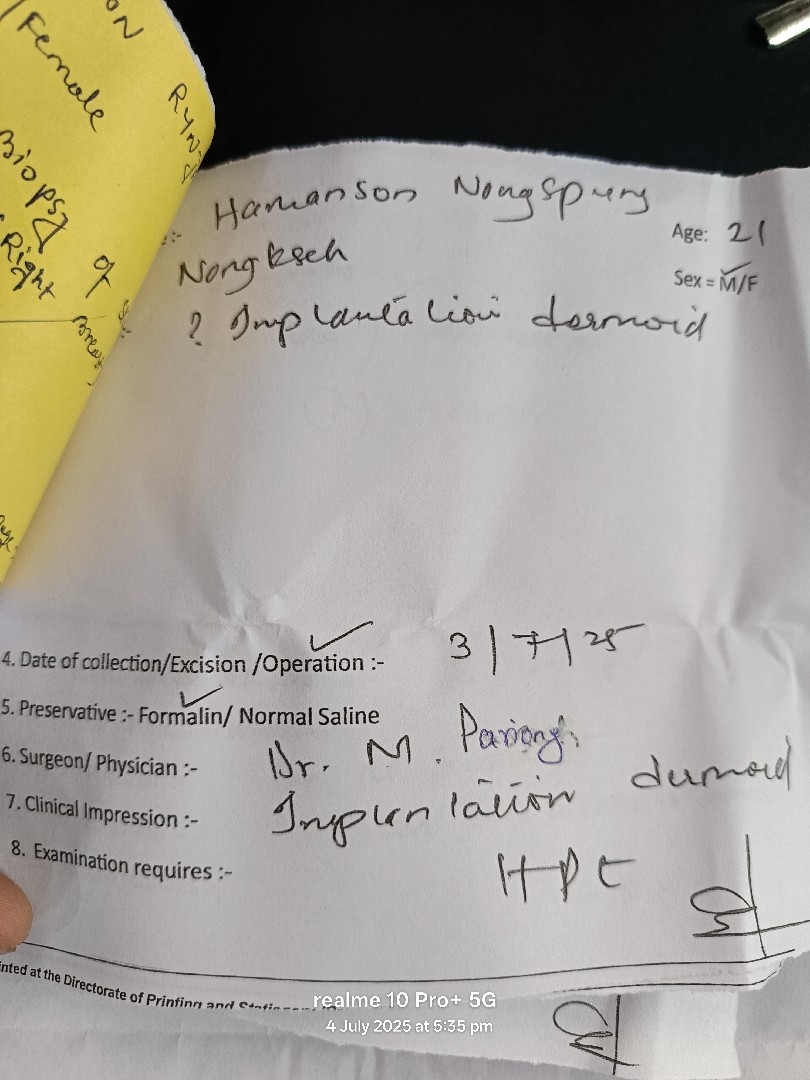 ON
Female
RYNJ
Biopsy of
Right Breast
:- Hamanson Nongspung
Age: 21
Nongkseh
Sex = M/F
? Implantation dermoid
4. Date of collection/Excision /Operation :- 3/7/25
5. Preservative :- Formalin/ Normal Saline
6. Surgeon/ Physician :- Dr. M. Pariong
7. Clinical Impression :- Implantation dermoid
8. Examination requires :- HPE
nted at the Directorate of Printing and
realme 10 Pro+ 5G
4 July 2025 at 5:35 pm